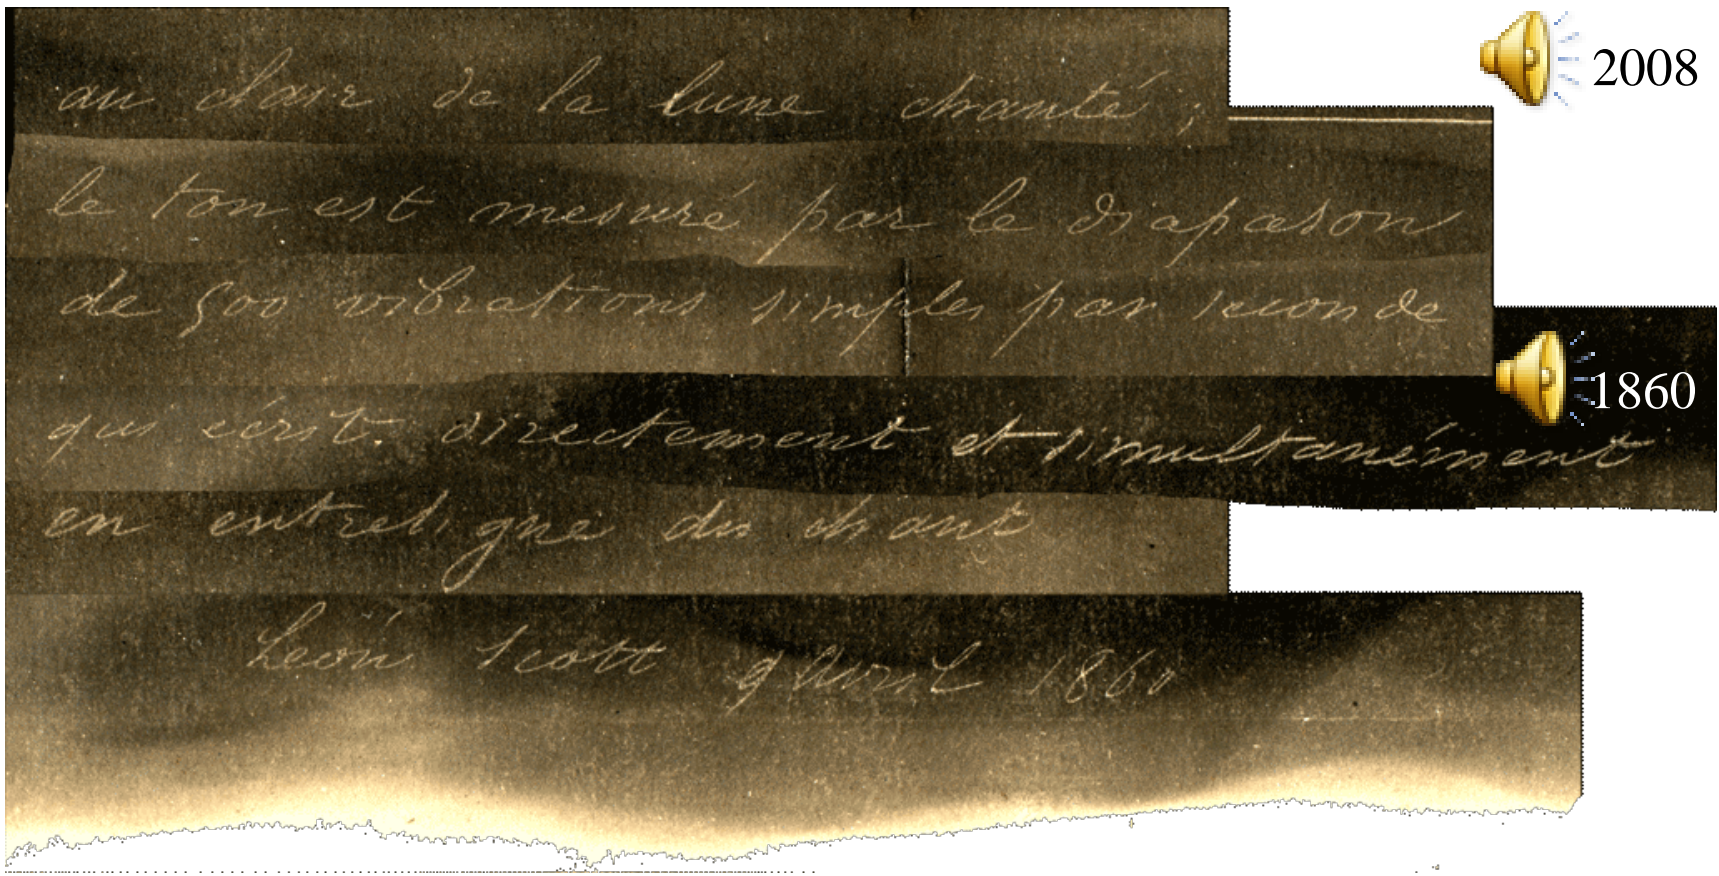 au clair de la lune chanté ;
2008
le ton est mesuré par le diapason
de 500 vibrations simples par seconde
1860
qui écrit directement et simultanément
en entreligne du chant
Léon Scott 9 Avril 1860